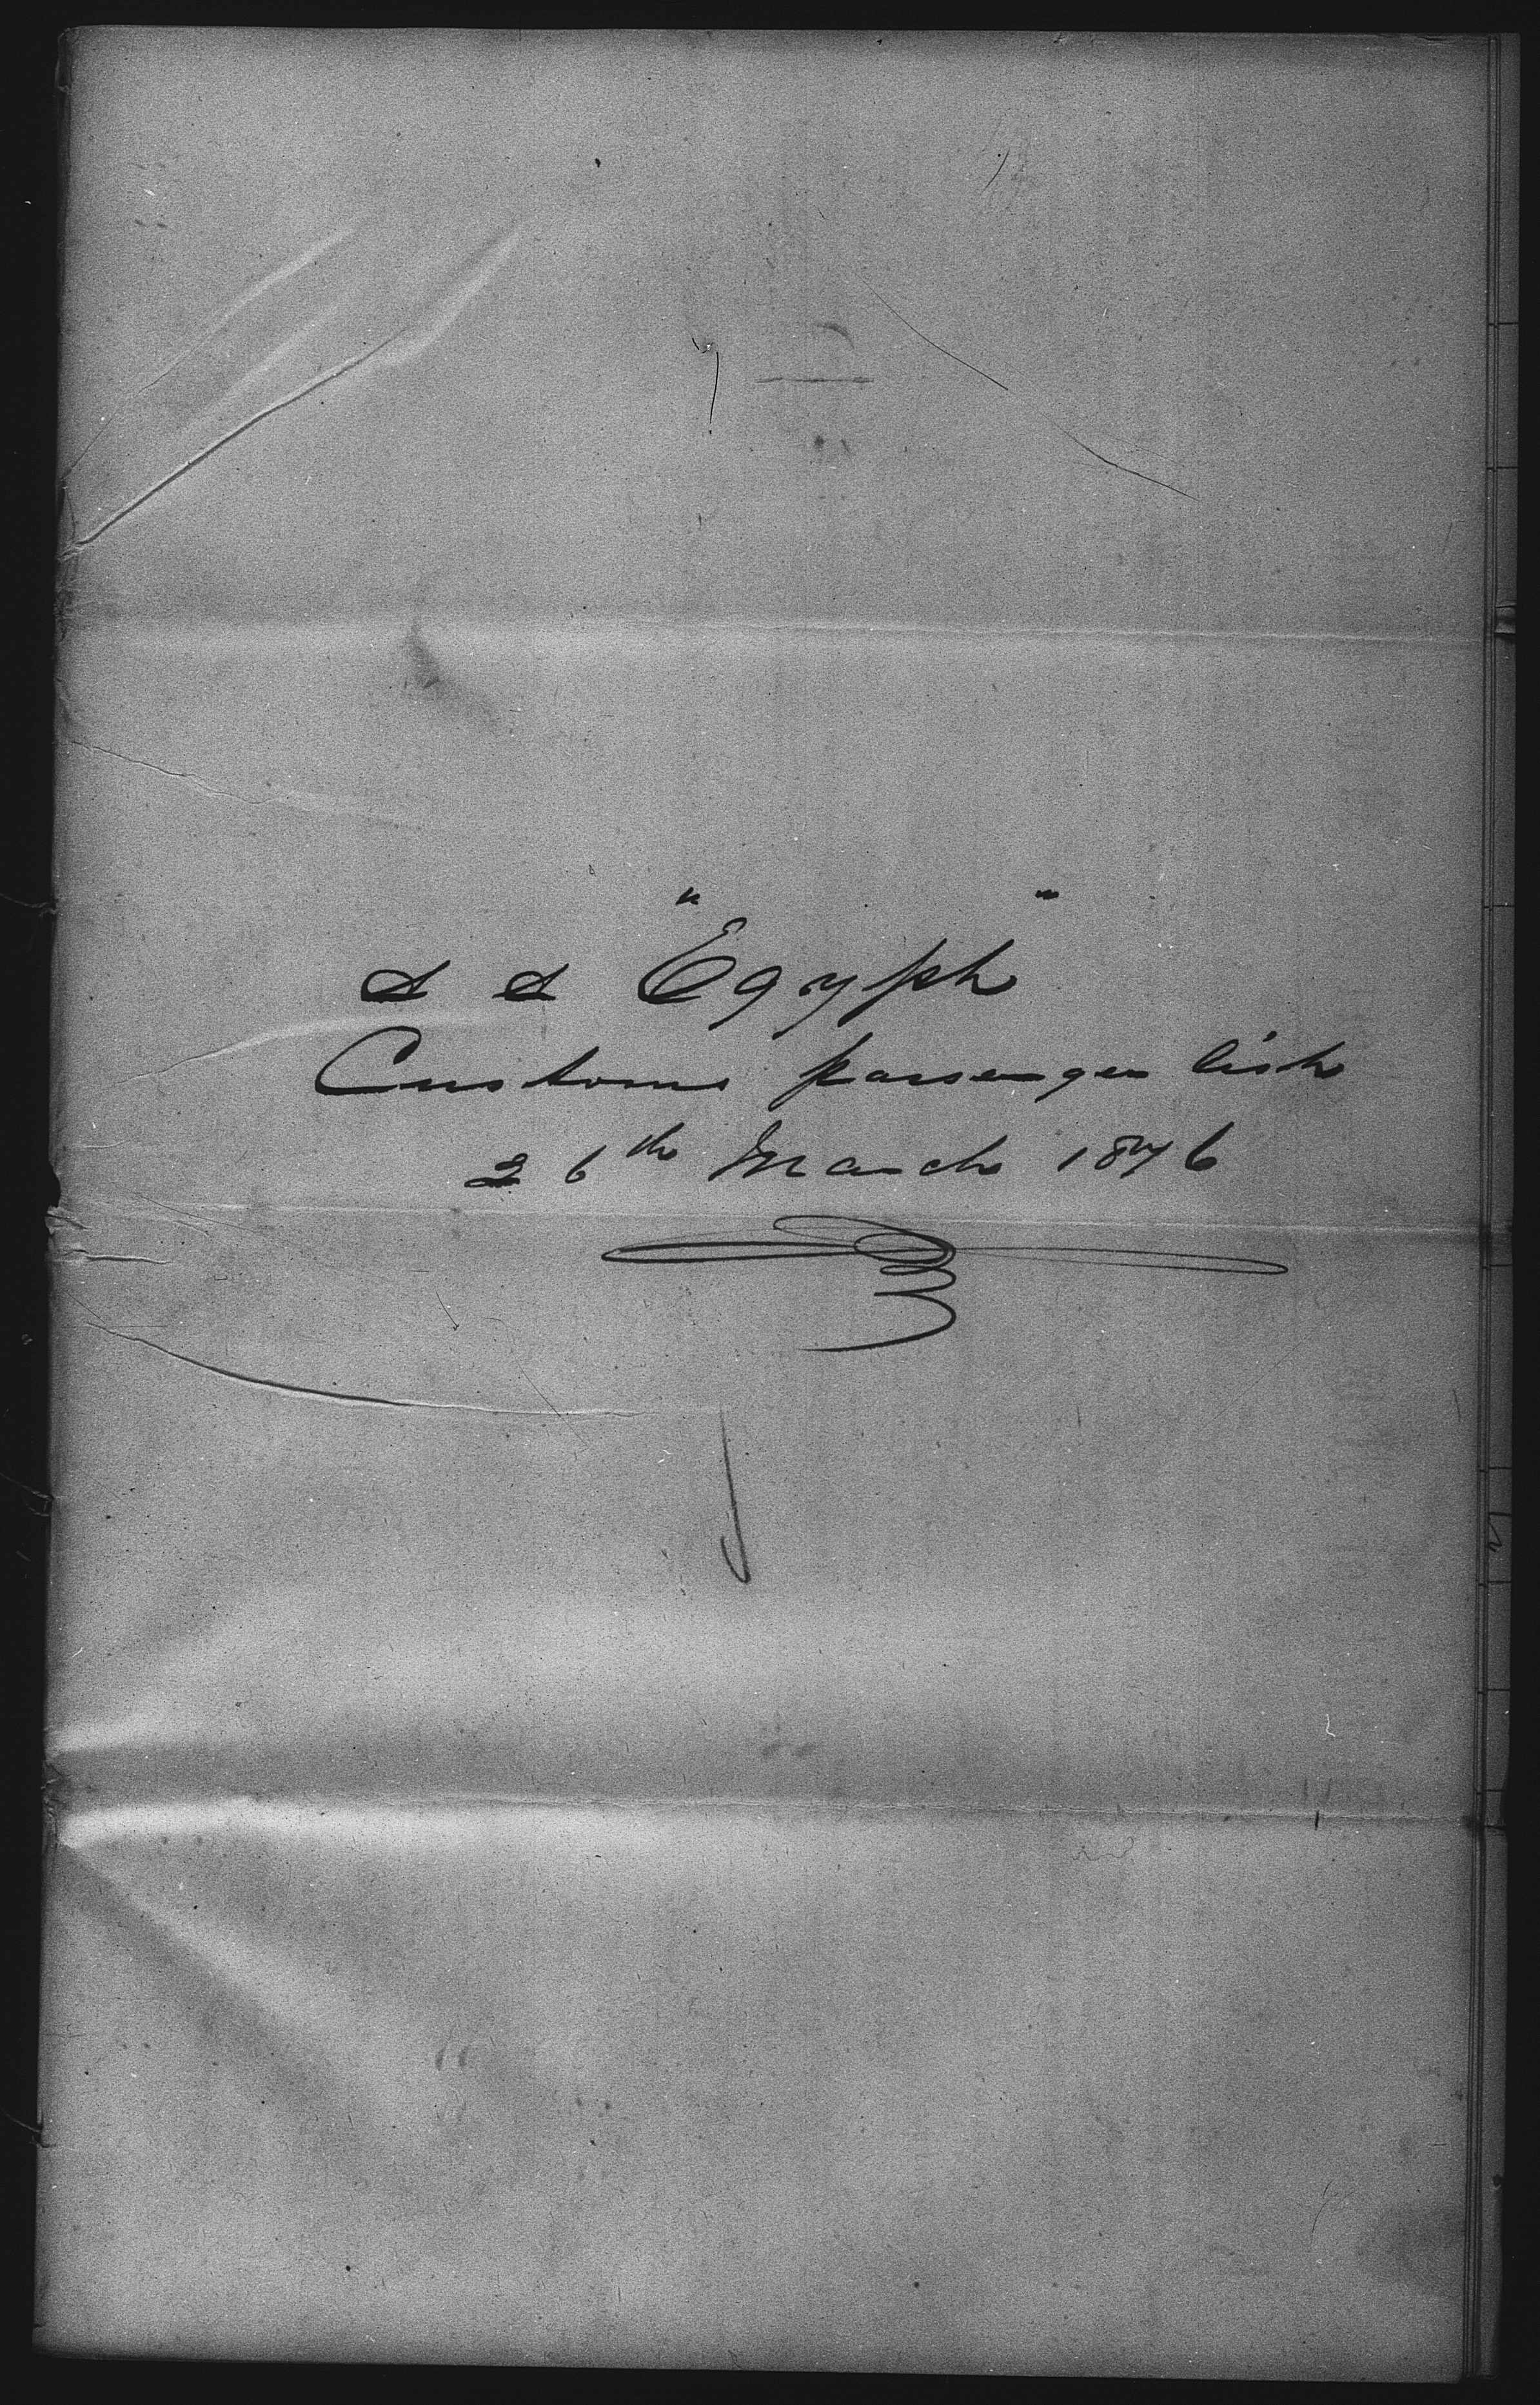 S S "Egypt"
Customs passenger list
26th March 1876